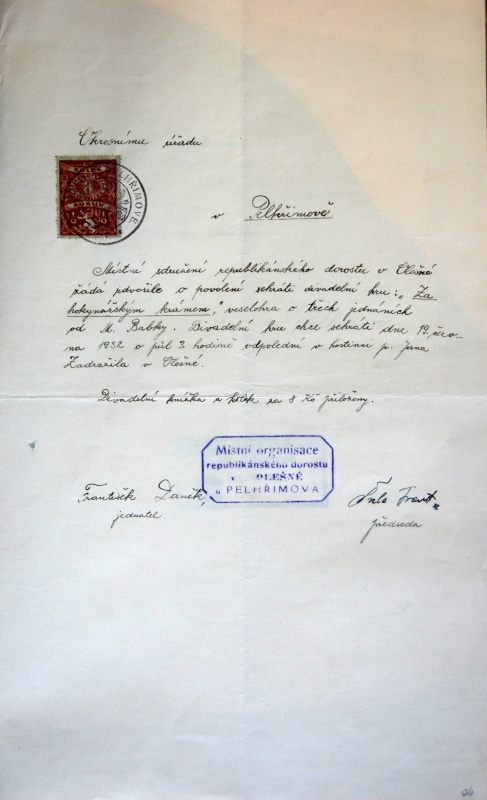 Okresnímu úřadu
v Pelhřimově
Místní sdružení republikánského dorostu v Olešné
žádá zdvořile o povolení sehráti divadelní hru: „Za
hokynářským krámem", veselohra o třech jednáních
od M. Babky. Divadelní hru chce sehráti dne 19. červ-
na 1932 o půl 3. hodině odpolední v hostinci p. Jana
Zadražila v Olešné.
Divadelní knížka a kolek za 8 Kč přiloženy.
Místní organisace
republikánského dorostu
v OLEŠNÉ
u PELHŘIMOVA
František Daněk,
jednatel.
předseda